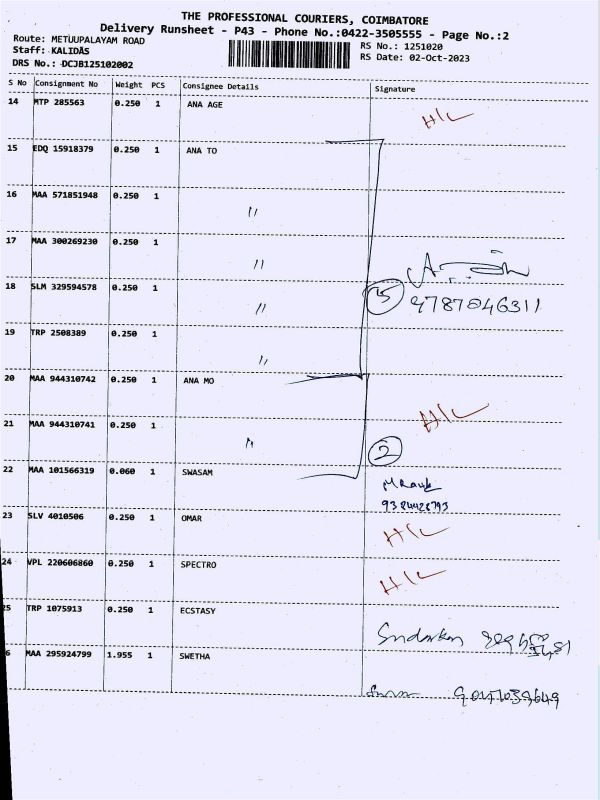 THE PROFESSIONAL COURIERS, COIMBATORE
Delivery Runsheet - P43 - Phone No.:0422-3505555 - Page No.:2
Route: METUUPALAYAM ROAD
RS No.: 1251020
Staff: KALIDAS
RS Date: 02-Oct-2023
DRS No.: DCJB125102002
S No Consignment No Weight PCS Consignee Details Signature
14 MTP 285563 0.250 1 ANA AGE H/L
15 EDQ 15918379 0.250 1 ANA TO
16 MAA 571851948 0.250 1 "
17 MAA 300269230 0.250 1 "
18 SLM 329594578 0.250 1 " 5 9787046311
19 TRP 2508389 0.250 1 "
20 MAA 944310742 0.250 1 ANA MO
H/L
21 MAA 944310741 0.250 1 " 2
22 MAA 101566319 0.060 1 SWASAM
23 SLV 4010506 0.250 1 OMAR H/L
24 VPL 220606860 0.250 1 SPECTRO H/L
25 TRP 1075913 0.250 1 ECSTASY
6 MAA 295924799 1.955 1 SWETHA